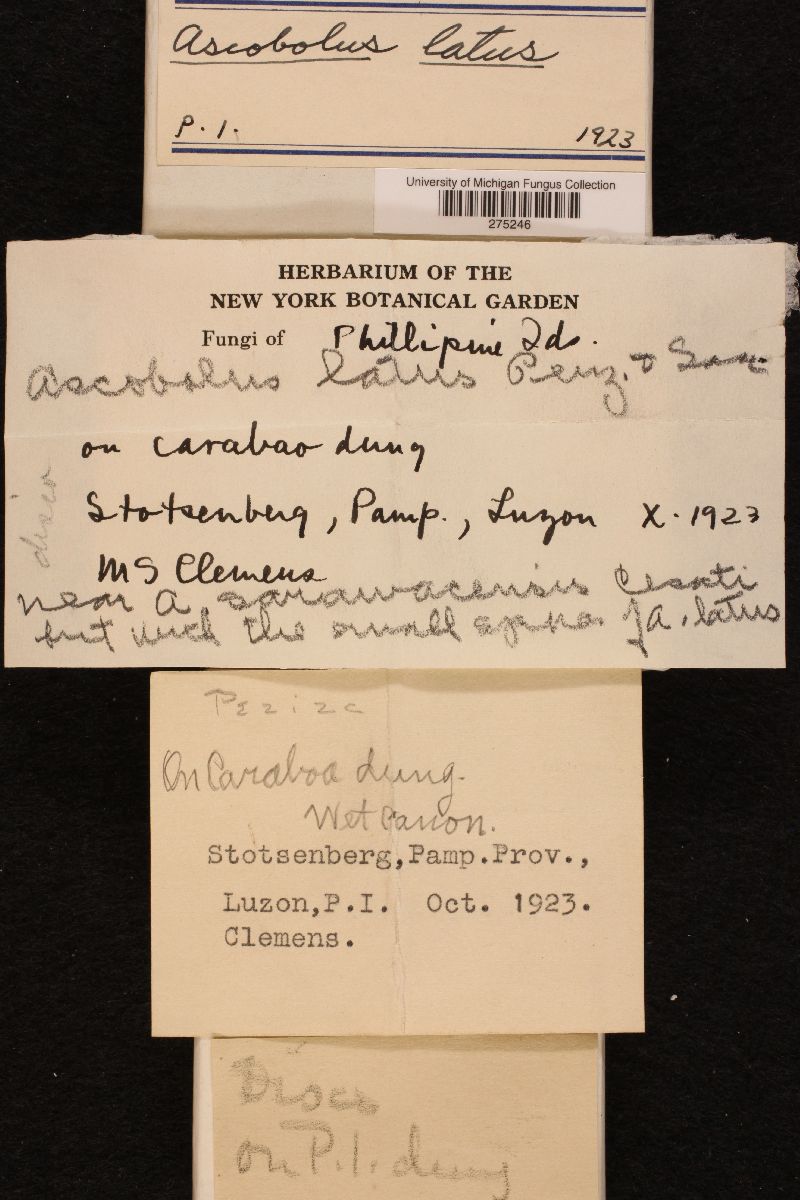 Ascobolus latus
P. I. 1923
University of Michigan Fungus Collection
275246
HERBARIUM OF THE
NEW YORK BOTANICAL GARDEN
Fungi of Phillipine Ids.
Ascobolus latus Penz. & Sacc
on carabao dung
disco
Stotsenberg, Pamp., Luzon X. 1923
MS Clemens
near A. sarawacensis Cesati
but with the small of A. latus
Peziza
On Carabao dung.
Wet Canon.
Stotsenberg,Pamp.Prov.,
Luzon,P.I. Oct. 1923.
Clemens.
Disco
on P.I. dung